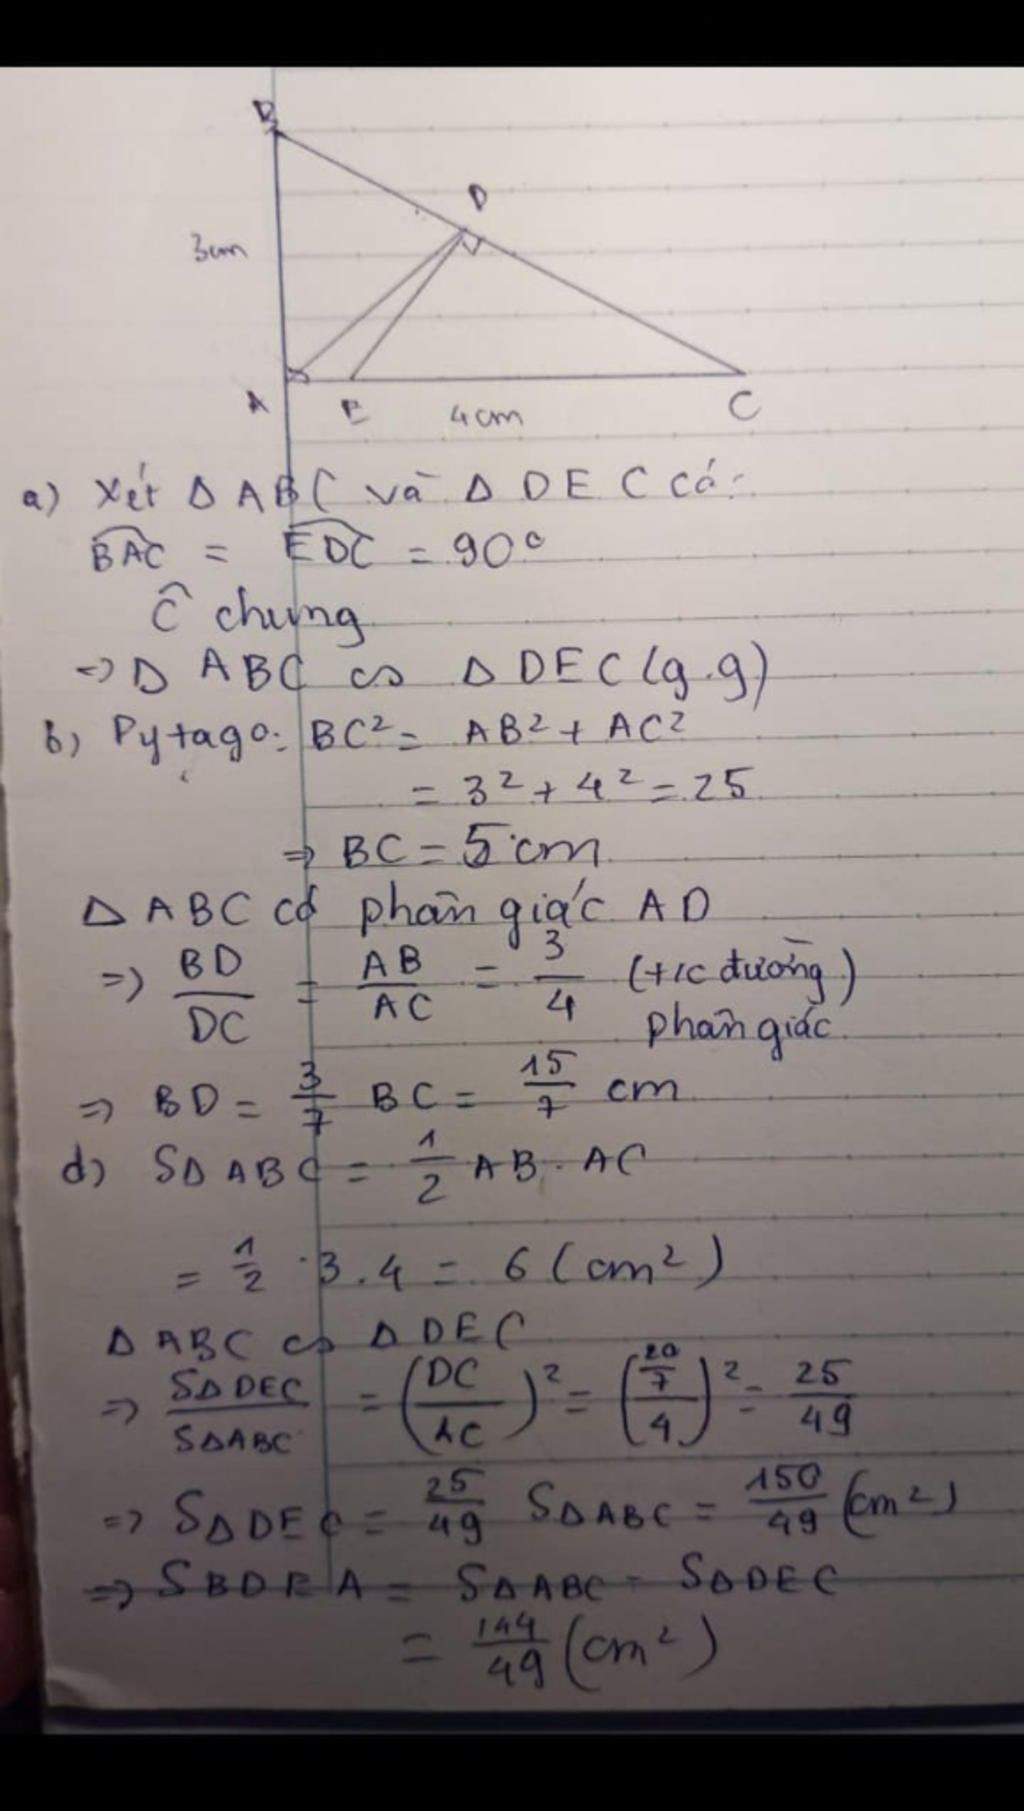 B
D
3cm
A E 4cm C
a) Xét Δ ABC và Δ DEC có:
BAC = EDC = 90°
Ĉ chung
=> Δ ABC ∽ Δ DEC (g.g)
b) Pytago: BC² = AB² + AC²
= 3² + 4² = 25
=> BC = 5 cm
Δ ABC có phân giác AD
=> BD/DC = AB/AC = 3/4 (t/c đường phân giác)
=> BD = 3/7 BC = 15/7 cm
d) SΔABC = 1/2 AB. AC
= 1/2 . 3.4 = 6 (cm²)
Δ ABC ∽ Δ DEC
=> SΔDEC/SΔABC = (DC/AC)² = ((20/7)/4)² = 25/49
=> SΔDEC = 25/49 SΔABC = 150/49 (cm²)
=> SBDEA = SΔABC - SΔDEC
= 144/49 (cm²)